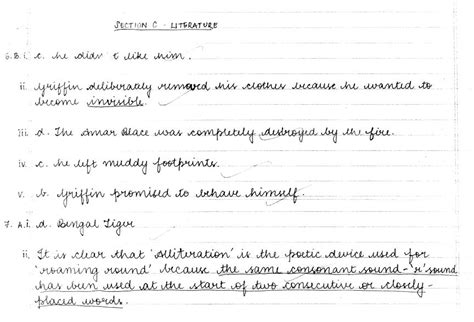 SECTION C - LITERATURE
6.B.i. c. he didn't like him.
ii. Griffin deliberately removed his clothes because he wanted to
become invisible.
iii. d. The Amar Place was completely destroyed by the fire.
iv. c. he left muddy footprints.
v. b. Griffin promised to behave himself.
7. A.i. d. Bengal Tiger
ii. It is clear that 'alliteration' is the poetic device used for
'roaming round' because the same consonant sound-'r'sound
has been used at the start of two consecutive or closely-
placed words.